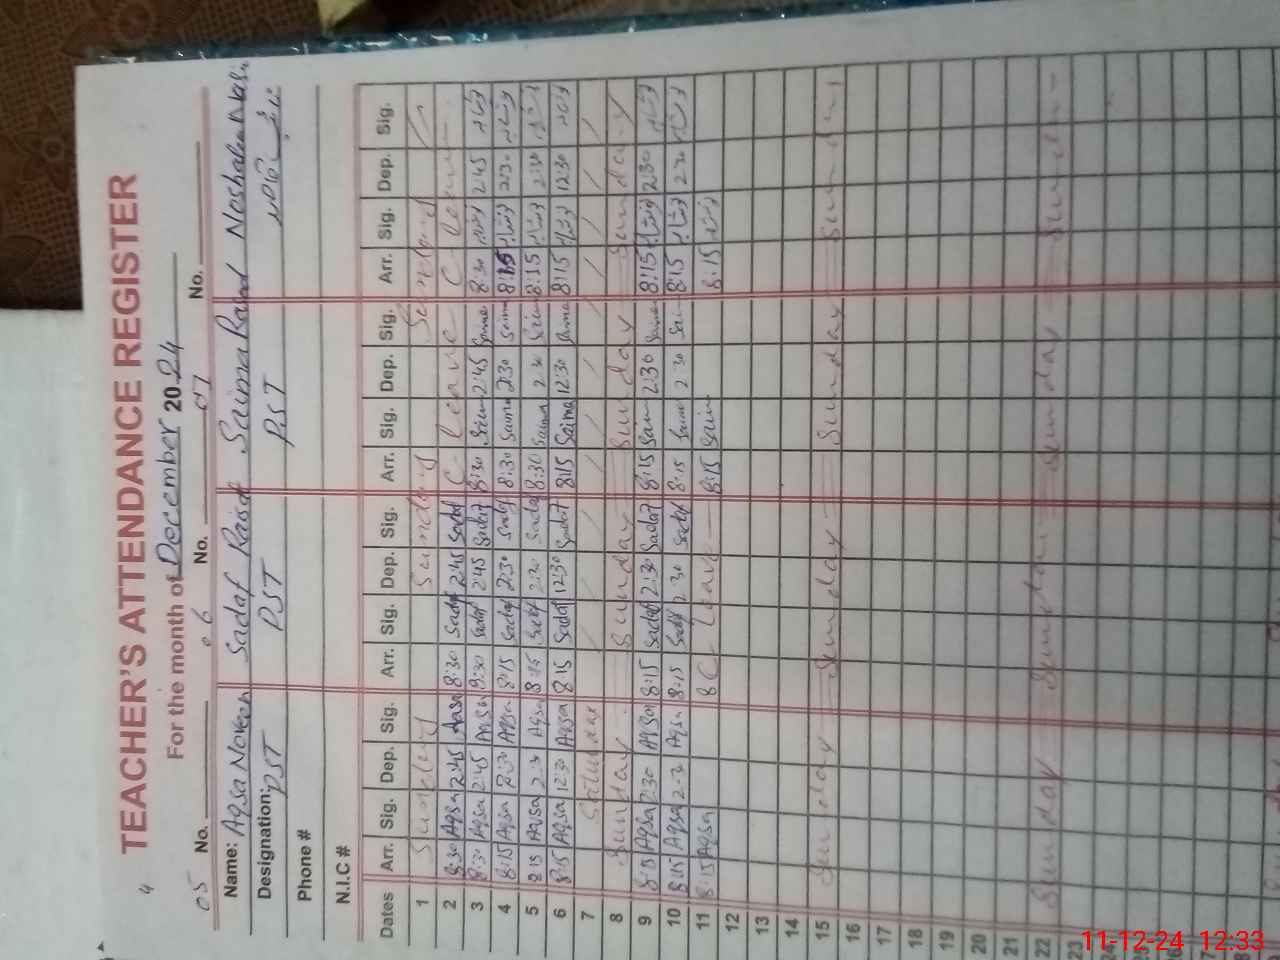 4
TEACHER'S ATTENDANCE REGISTER
For the month of December 2024
05 No. 06 No. 07 No.
Name: Aqsa Noreen Sadaf Rasid Saima Rashid Noshaba
Designation: PST PST PST
Phone #
N.I.C #
Dates Arr. Sig. Dep. Sig. Arr. Sig. Dep. Sig. Arr. Sig. Dep. Sig. Arr. Sig. Dep. Sig.
1 Sunday Sunday Sunday Sunday
2 8:30 Aqsa 2:45 Aqsa 8:30 Sadaf 2:45 Sadaf C- leave C- leave
3 8:30 Aqsa 2:45 Aqsa 8:30 Sadaf 2:45 Sadaf 8:30 Saima 2:45 Saima 8:30 2:45
4 8:15 Aqsa 2:30 Aqsa 8:15 Sadaf 2:30 Sadaf 8:30 Saima 2:30 Saima 8:15 2:30
5 8:15 Aqsa 2:30 Aqsa 8:15 Sadaf 2:30 Sadaf 8:30 Saima 2:30 Saima 8:15 2:30
6 8:15 Aqsa 12:30 Aqsa 8:15 Sadaf 12:30 Sadaf 8:15 Saima 12:30 Saima 8:15 12:30
7 Saturday
8 Sunday Sunday Sunday Sunday
9 8:15 Aqsa 2:30 Aqsa 8:15 Sadaf 2:30 Sadaf 8:15 Saima 2:30 Saima 8:15 2:30
10 8:15 Aqsa 2:30 Aqsa 8:15 Sadaf 2:30 Sadaf 8:15 Saima 2:30 Saima 8:15 2:30
11 8:15 Aqsa C- leave 8:15 Saima 8:15
12
13
14
15 Sunday Sunday Sunday Sunday
16
17
18
19
20
21
22 Sunday Sunday Sunday Sunday
23
24
25
26
27
28
11-12-24 12:33